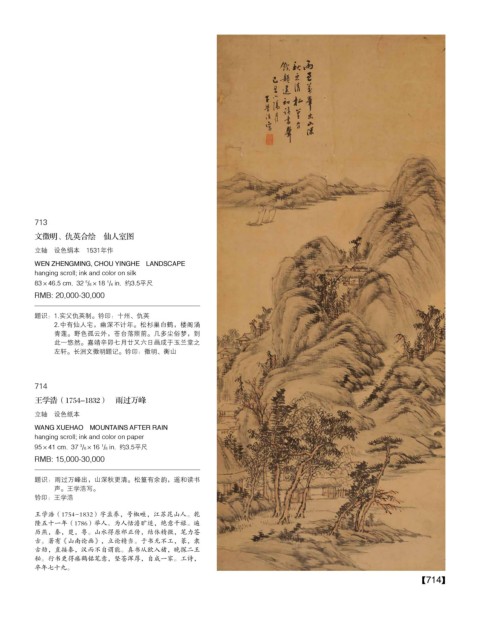 713
文徵明、仇英合绘　仙人室图
立轴　设色绢本　1531年作
WEN ZHENGMING, CHOU YINGHE　LANDSCAPE
hanging scroll; ink and color on silk
83×46.5 cm.  32 5/8×18 1/4 in.  约3.5平尺
RMB: 20,000-30,000
题识：1.实父仇英制。钤印：十州、仇英
2.中有仙人宅，幽深不计年。松杉巢白鹤，楼阁涌
青莲。野色孤云外，苍台落照前。几多尘俗梦，到
此一悠然。嘉靖辛卯七月廿又六日画成于玉兰堂之
左轩。长洲文徵明题记。钤印：徵明、衡山
714
王学浩（1754–1832）　雨过万峰
立轴　设色纸本
WANG XUEHAO　MOUNTAINS AFTER RAIN
hanging scroll; ink and color on paper
95×41 cm.  37 3/8×16 1/8 in.  约3.5平尺
RMB: 15,000-30,000
题识：雨过万峰出，山深秋更清。松篁有余韵，遥和读书
声。王学浩写。
钤印：王学浩
王学浩（1754-1832）字孟养，号椒畦，江苏昆山人。乾
隆五十一年（1786）举人。为人恬澹旷达，绝意干禄。遍
历燕，秦，楚，粤。山水得原祁正传，结体精微，笔力苍
古。著有《山南论画》，立论精当。于书无不工，篆，隶
古劲，直接秦，汉而不自谓能。真书从欧入褚，晚探二王
秘。行书更得瘗鹤铭笔意，坚苍浑厚，自成一家。工诗，
卒年七十九。
雨过万峰出山深
秋更清松篁有
余韵遥和读书声
王学浩写
【714】